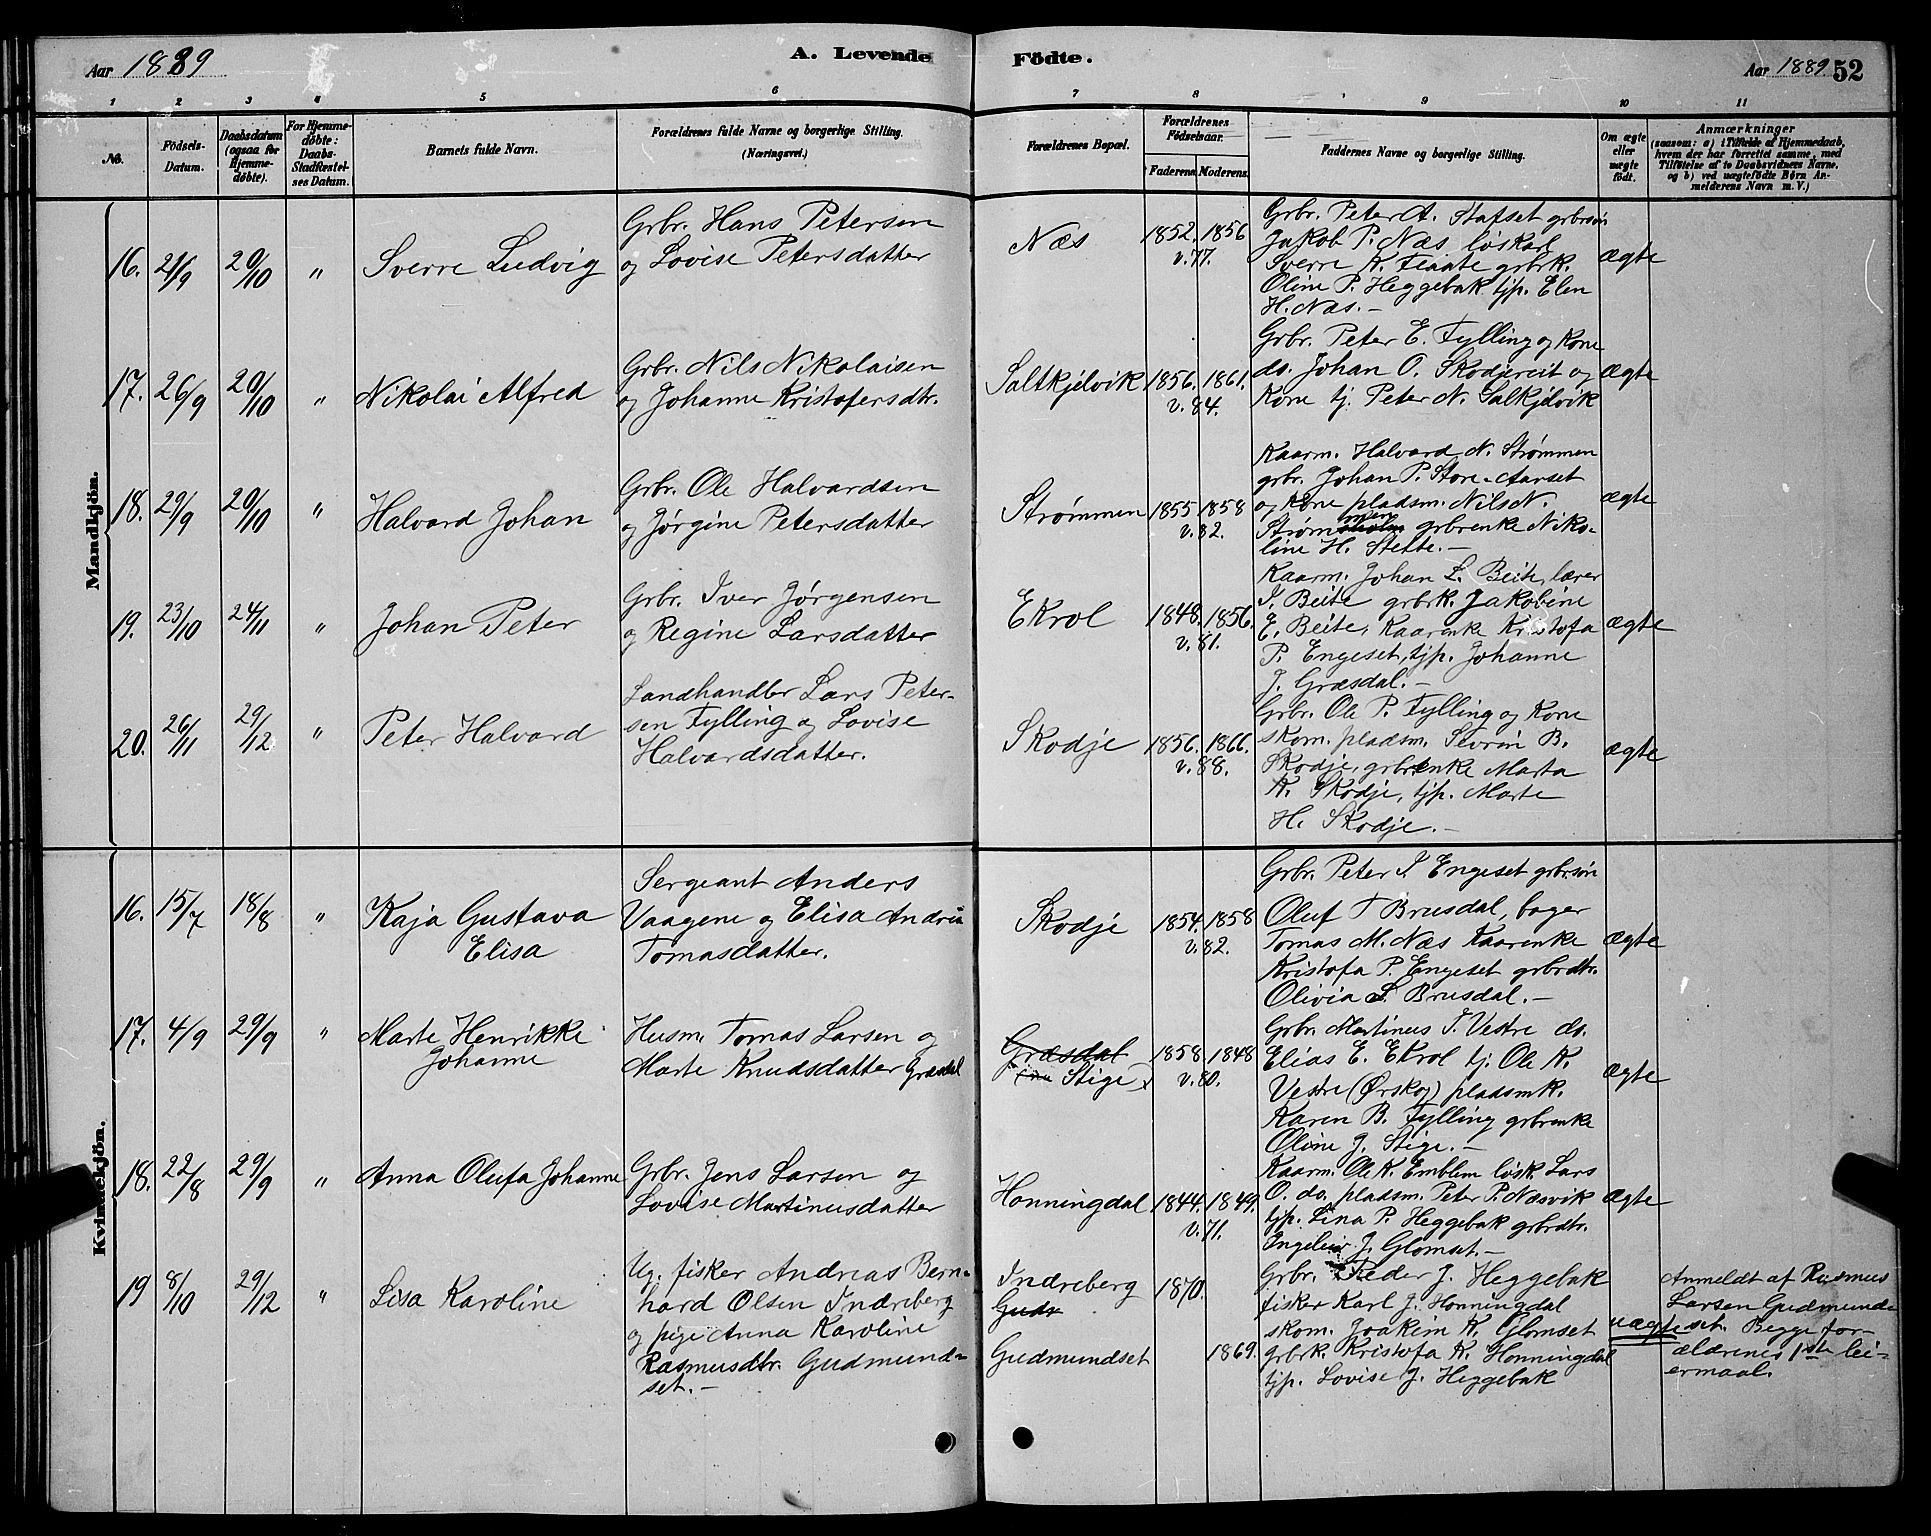 Aar 1889
A. Levende Födte.
Aar 1889. 52
1 2 3 4 5 6 7 8 9 10 11
No.
Födsels-Datum.
Daabsdatum (ogsaa for Hjemme-döbte).
For Hjemme-döbte: Daabs-Stadfæstel-ses Datum.
Barnets fulde Navn.
Forældrenes fulde Navne og borgerlige Stilling. (Næringsvei.)
Forældrenes Bopæl.
Forældrenes Födselsaar.
Faderens Moderens
Faddernes Navne og borgerlige Stilling.
Om ægte eller uægte födt.
Anmærkninger
(saasom: a) i Tilfælde af Hjemmedaab,
hvem der har forrettet samme, med
Tilföielse af to Daabsvidners Navne,
og b) ved uægtefödte Börn An-
melderens Navn m. V.)
Mandkjön.
16. 21/9 20/10 " Sverre Ludvig
Grbr. Hans Petersen
og Lovise Petersdatter
Næs
1852. 1856
v. 77.
Grbr. Peter A. Stafset grbrsøn
Jakob P. Næs løskarl
Sverre K. Flaate grbrk.
Oline P. Heggebak tjp. Elen
H. Næs.-
ægte
17. 26/9 20/10 " Nikolai Alfred
Grbr. Nils Nikolaisen
og Johanne Kristofersdtr.
Saltkjelvik
1856. 1861.
v. 84.
Grbr. Peter E. Fylling og Kone
do. Johan O. Skodjereit og
Kone tj. Peter N. Salkjelvik
ægte
18. 29/9 20/10 " Halvard Johan
Grbr. Ole Halvardsen
og Jørgine Petersdatter
Strømmen
1855 1858
v. 82.
Kaarm. Halvard N. Strømmen
grbr. Johan P. Store-Aarset
og Kone pladsm. Nils N.
Strømmen grbrenke Niko-
line H. Stette.-
ægte
19. 23/10 24/11 " Johan Peter
Grbr. Iver Jørgensen
og Regine Larsdatter
Ekrol
1848. 1856.
v. 81.
Kaarm. Johan L. Beite, lærer
I. Beite grbrk. Jakobine
E. Beite, Kaarenke Kristofa
P. Engeset, tjp. Johanne
J. Græsdal.-
ægte
20. 26/11 29/12 " Peter Halvard
Landhandler Lars Peter-
sen Fylling og Lovise
Halvardsdatter.
Skodje
1856. 1866.
v. 88.
Grbr. Ole P. Fylling og Kone
skom. pladsm. Sevrin B.
Skodje, grbrenke Marta
K. Skodje, tjp. Marte
H. Skodje.-
ægte
Kvindekjön.
16. 15/7 18/8 " Kaja Gustava
Elisa
Sergeant Anders
Vaagene og Elisa Andrea
Tomasdatter.
Skodje
1854. 1858
v. 82.
Grbr. Peter I. Engeset grbrsøn
Oluf T Brusdal, bager
Tomas M. Næs Kaarenke
Kristofa P. Engeset grbrdtr.
Olivia S. Brusdal.-
ægte
17. 4/9 29/9 " Marte Henrikke
Johanne
Husm. Tomas Larsen og
Marte Knudsdatter Græsdal
Græsdal
Stige
1858 1848
v. 80.
Grbr. Martinus I. Vestre do.
Elias E. Ekrol tj. Ole K.
Vestre (Ørskog) pladsmk.
Karen B. Fylling grbrenke
Oline J. Stige.-
ægte
18. 22/8 29/9 " Anna Olufa Johanne
Grbr. Jens Larsen og
Lovise Martinusdatter
Honningdal
1844. 1849.
v. 71.
Kaarm. Ole K. Emblem løsk. Lars
O. do. pladsm. Peter P. Næsvik
tjp. Lina P. Heggebak grbrdtr.
J. Glomset.-
ægte
19 8/10 29/12 " Lisa Karoline
Ug. fisker Andreas Bern-
hard Olsen Indreberg
og pige Anna Karoline
Rasmusdtr. Gudmund-
set.-
Indreberg
Gudr
Gudmundset
1870.
1869.
Grbr. Peder J. Heggebak
fisker Karl J. Honningdal
skom. Joakim K. Glomset
grbrk. Kristofa K. Honningdal
tjp. Lovise J. Heggebak
uægte
Anmeldt af Rasmus
Larsen Gudmund-
set. Begge for-
ældrenes 1ste lei-
ermaal.